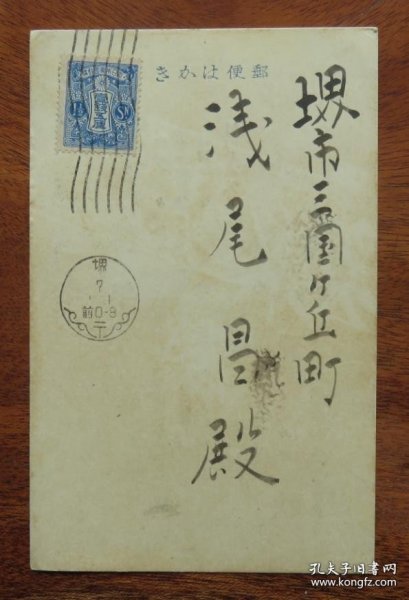 郵便はかき
堺市三國ヶ丘町
浅尾昌殿
1½ SN
堺
7.1.1
前0-8
孔夫子旧书网
www.kongfz.com